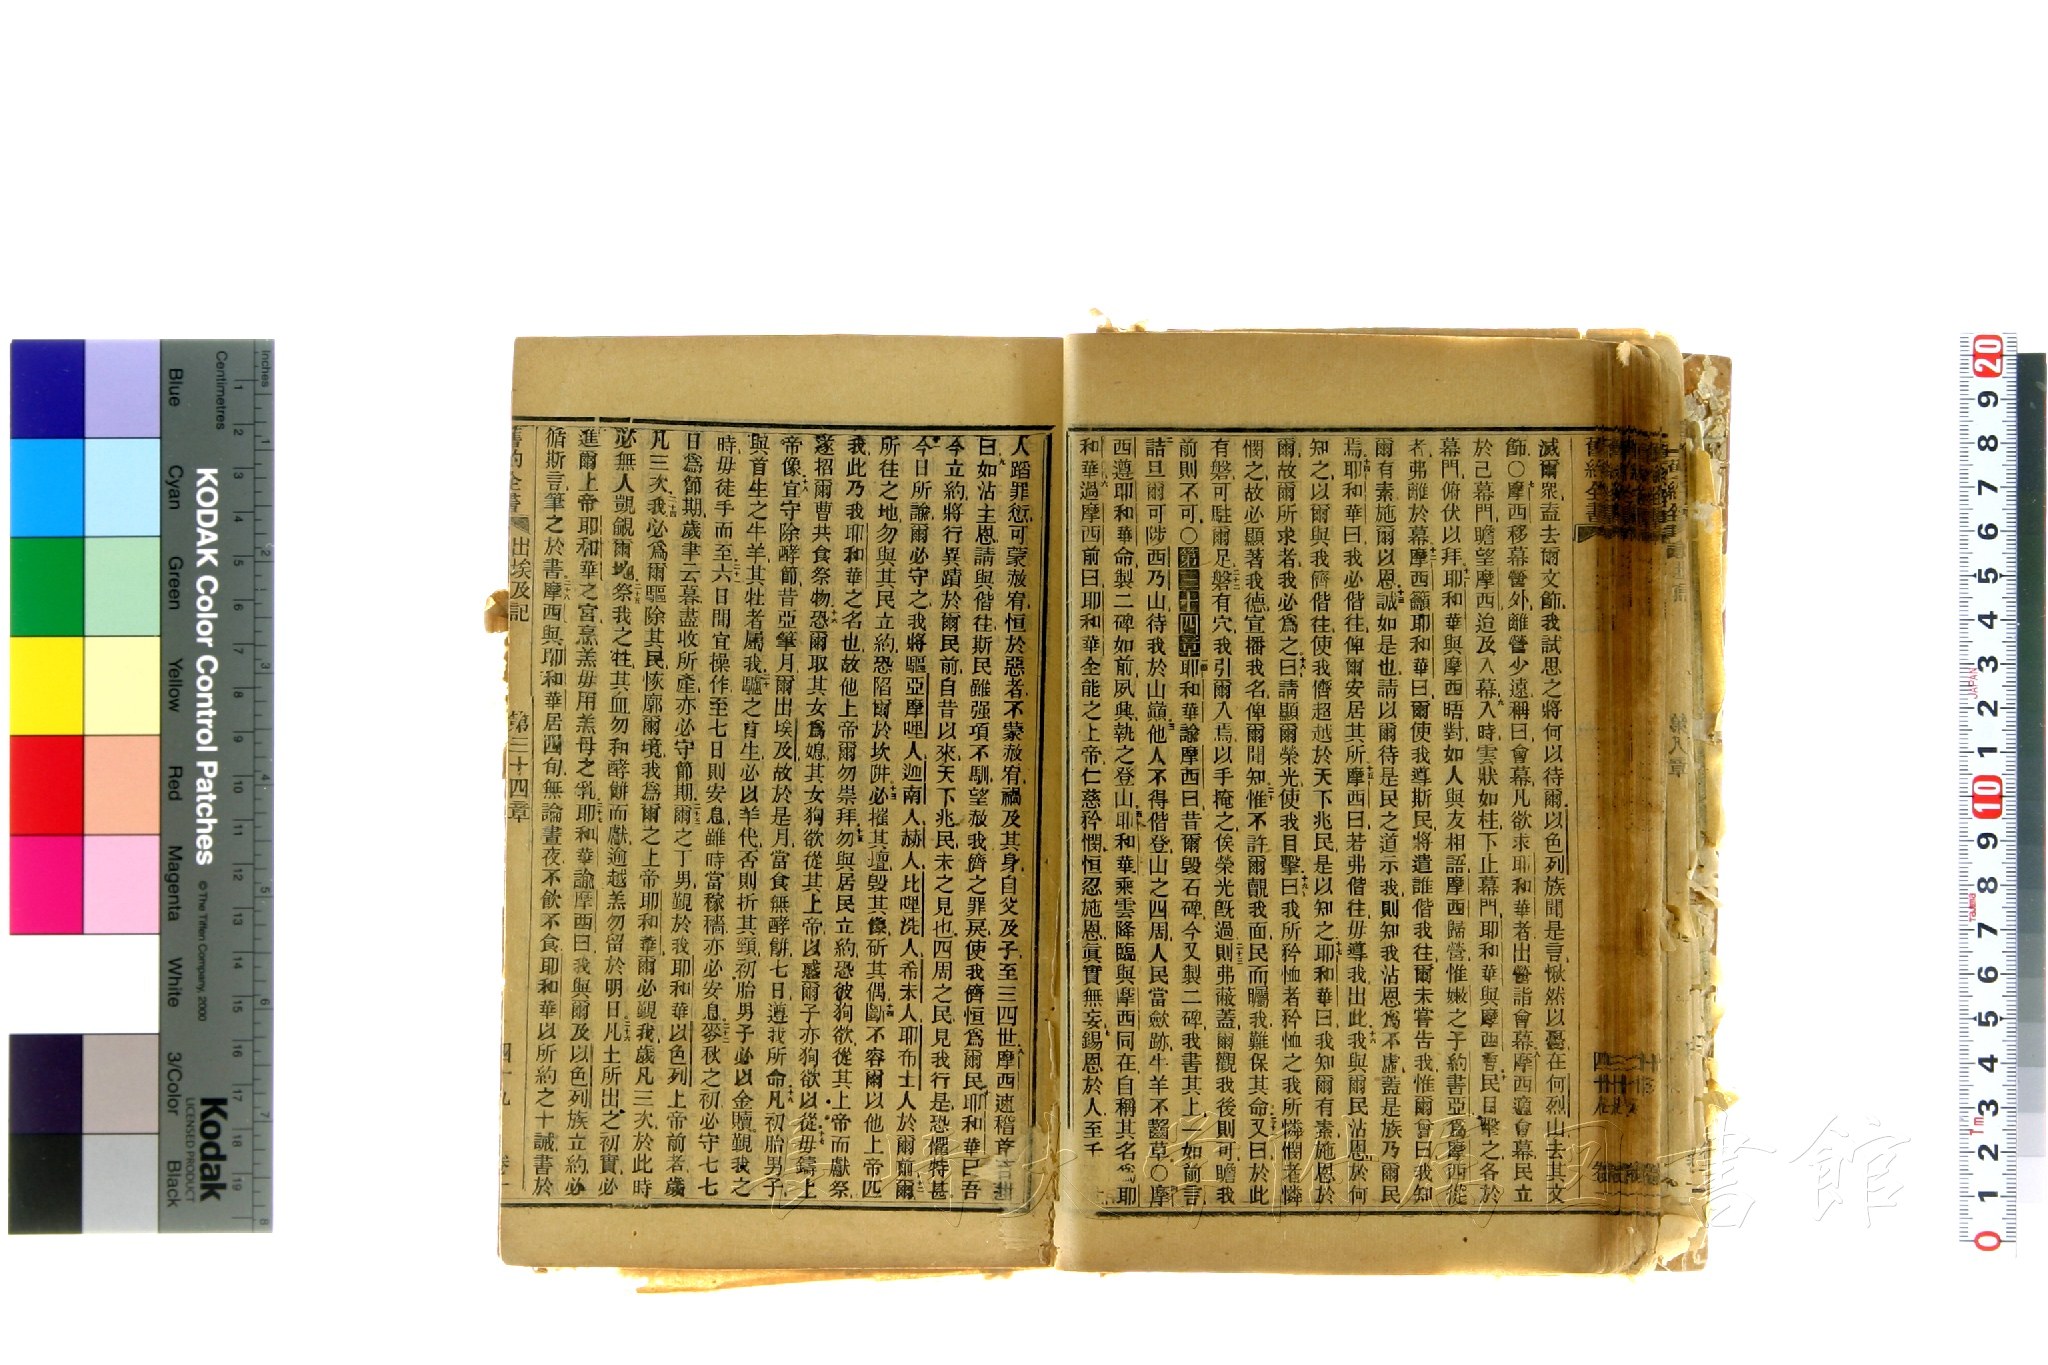 滅爾衆盍去爾文飾我試思之將何以待爾以色列族聞是言愀然以憂在何烈山去其文
飾○摩西移幕營外離營少遠稱曰會幕凡欲求耶和華者出營詣會幕摩西適會幕民立
於己幕門瞻望摩西迨及入幕入時雲狀如柱下止幕門耶和華與摩西言民目擊之各於
幕門俯伏以拜耶和華與摩西晤對如人與友相語摩西歸營惟嫩之子約書亞爲摩西從
者弗離於幕摩西籲耶和華曰爾使我導斯民將遣誰偕我往爾未嘗告我惟爾曾曰我知
爾有素施爾以恩誠如是也請以爾待是民之道示我則知我沾恩爲不虛蓋是族乃爾民
焉耶和華曰我必偕往俾爾安居其所摩西曰若弗偕往毋導我出此我與爾民沾恩於何
知之以爾與我儕偕往使我儕超越於天下兆民是以知之耶和華曰我知爾有素施恩於
爾故爾所求者我必爲之曰請顯爾榮光使我目擊曰我所矜恤者矜恤之我所憐憫者憐
憫之故必顯著我德宣播我名俾爾聞知惟不許爾覿我面民而矚我難保其命又曰於此
有磐可駐爾足磐有穴我引爾入焉以手掩之俟榮光旣過則弗蔽蓋爾觀我後則可瞻我
前則不可○第三十四章耶和華諭摩西曰昔爾毀石碑今又製二碑我書其上一如前言
詰旦爾可陟西乃山待我於山巓他人不得偕登山之四周人民當歛跡牛羊不齧草○摩
西遵耶和華命製二碑如前夙興執之登山耶和華乘雲降臨與摩西同在自稱其名爲耶
和華過摩西前曰耶和華全能之上帝仁慈矜憫恒忍施恩眞實無妄錫恩於人至千
人蹈罪愆可蒙赦宥恒於惡者不蒙赦宥禍及其身自父及子至三四世摩西速稽首
曰如沾主恩請與偕往斯民雖强項不馴望赦我儕之罪戾使我儕恒爲爾民耶和華曰吾
今立約將行異蹟於爾民前自昔以來天下兆民未之見也四周之民見我行是恐懼特甚
今日所諭爾必守之我將驅亞摩哩人迦南人赫人比哩洗人希未人耶布士人於爾前爾
所往之地勿與其民立約恐陷爾於坎阱必摧其壇毀其像斫其偶斷不容爾以他上帝匹
我此乃我耶和華之名也故他上帝爾勿崇拜勿與居民立約恐彼狥欲從其上帝而獻祭
遂招爾曹共食祭物恐爾取其女爲媳其女狥欲從其上帝以惑爾子亦狥欲以從毋鑄上
帝像宜守除酵節昔亞筆月爾出埃及故於是月當食無酵餅七日遵我所命凡初胎男子
與首生之牛羊其牡者屬我驢之首生必以羊代否則折其頸初胎男子必以金贖覲我之
時毋徒手而至六日間宜操作至七日則安息雖時當稼穡亦必安息麥秋之初必守七七
日爲節期歲聿云暮盡收所產亦必守節期爾之丁男覲於我耶和華以色列上帝前者歲
凡三次我必爲爾驅除其民恢廓爾境我爲爾之上帝耶和華爾必覲我歲凡三次於此時
必無人覬覦爾地祭我之牲其血勿和酵餅而獻逾越羔勿留於明日凡土所出之初實必
進爾上帝耶和華之宮烹羔毋用羔母之乳耶和華諭摩西曰我與爾及以色列族立約必
循斯言筆之於書摩西與耶和華居四旬無論晝夜不飮不食耶和華以所約之十誡書於
舊約全書 出埃及記 第三十四章 四十九
KODAK Color Control Patches
© The Tiffen Company, 2000
Kodak
LICENSED PRODUCT
Inches
Centimetres
Blue
Cyan
Green
Yellow
Red
Magenta
White
3/Color
Black